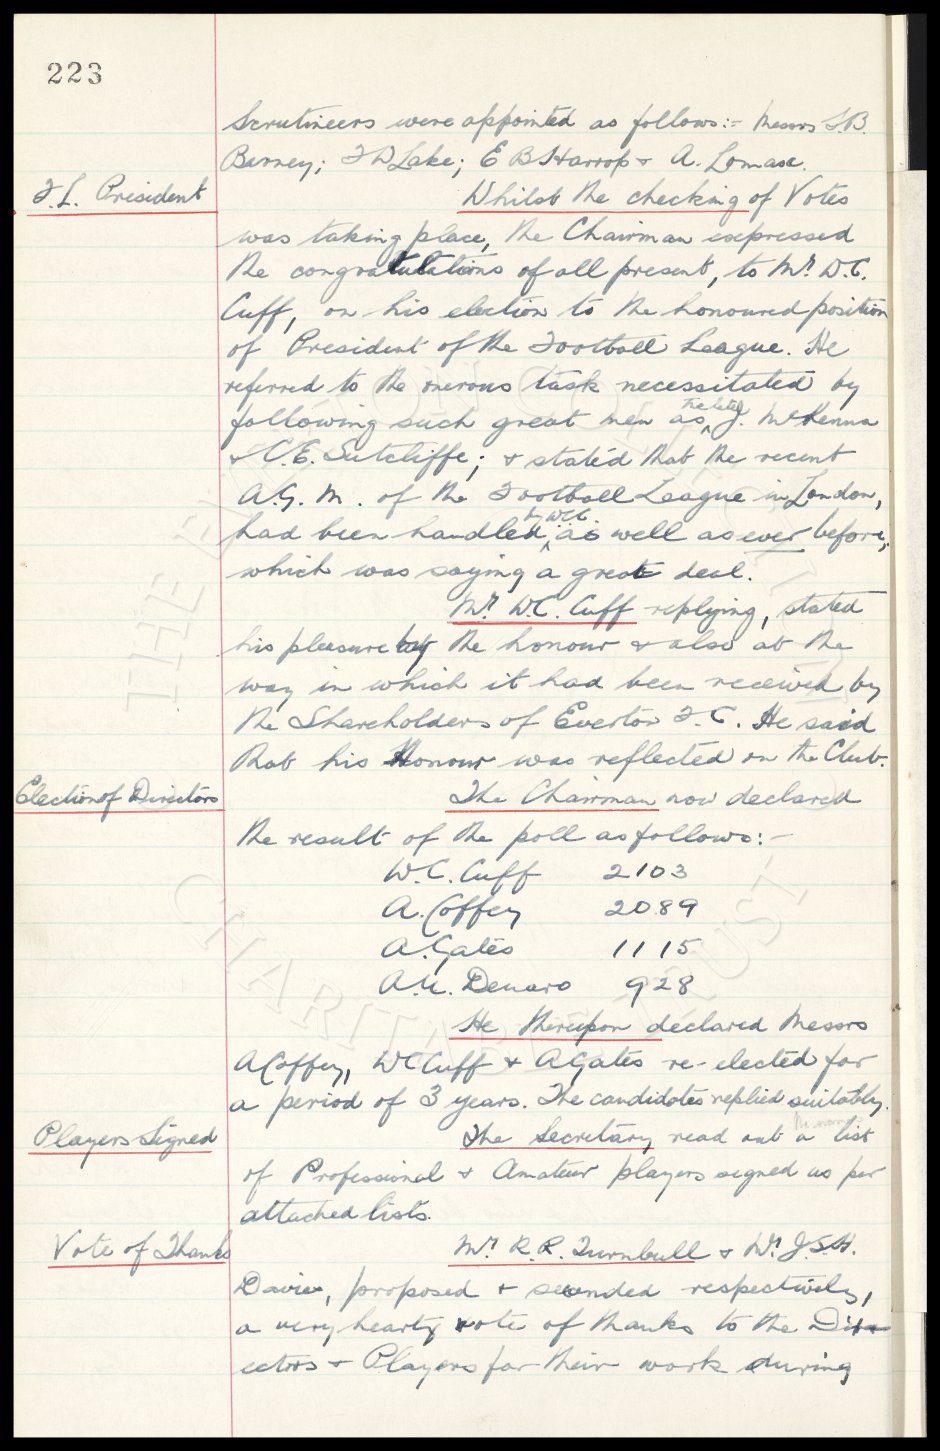 223
Scrutineers were appointed as follows:- Messrs S.B.
Berney; F W Lake; E B Harrop & A. Lomax.
F.L. President
Whilst the checking of Votes
was taking place, the Chairman expressed
the congratulations of all present, to Mr. W.C.
Cuff, on his election to the honoured position
of President of the Football League. He
referred to the onerous task necessitated by
following such great men as, the late J. McKenna
& C.E. Sutcliffe; & stated that the recent
A.G.M. of the Football League in London,
had been handled by W.C.C. as well as ever before,
which was saying a great deal.
Mr. W.C. Cuff replying, stated
his pleasure at the honour & also at the
way in which it had been received by
the Shareholders of Everton F.C. He said
that his Honour was reflected on the Club.
Election of Directors
The Chairman now declared
the result of the poll as follows:-
W.C. Cuff 2103
A. Coffey 2089
A. Gates 1115
A.N. Denaro 928
He thereupon declared Messrs
A Coffey, W C Cuff & A Gates re-elected for
a period of 3 years. The candidates replied suitably.
Players Signed
The Secretary read out a list
of Professional & Amateur players signed as per
attached lists.
Vote of Thanks
Mr. R.R. Turnbull & Mr. J.S.H.
Davies, proposed & seconded respectively,
a very hearty vote of thanks to the Dir-
ectors & Players for their work during
THE EVERTON COLLECTION
CHARITABLE TRUST